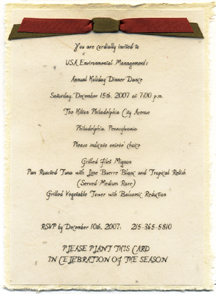 You are cordially invited to
USA Environmental Management's
Annual Holiday Dinner Dance
Saturday, December 15th, 2007 at 7:00 p.m.
The Hilton Philadelphia City Avenue
Philadelphia, Pennsylvania
Please indicate entrée choice
Grilled Filet Mignon
Pan Roasted Tuna with Lime Buerre Blanc and Tropical Relish
(Served Medium Rare)
Grilled Vegetable Tower with Balsamic Reduction
RSVP by December 10th, 2007: 215-365-5810
PLEASE PLANT THIS CARD
IN CELEBRATION OF THE SEASON